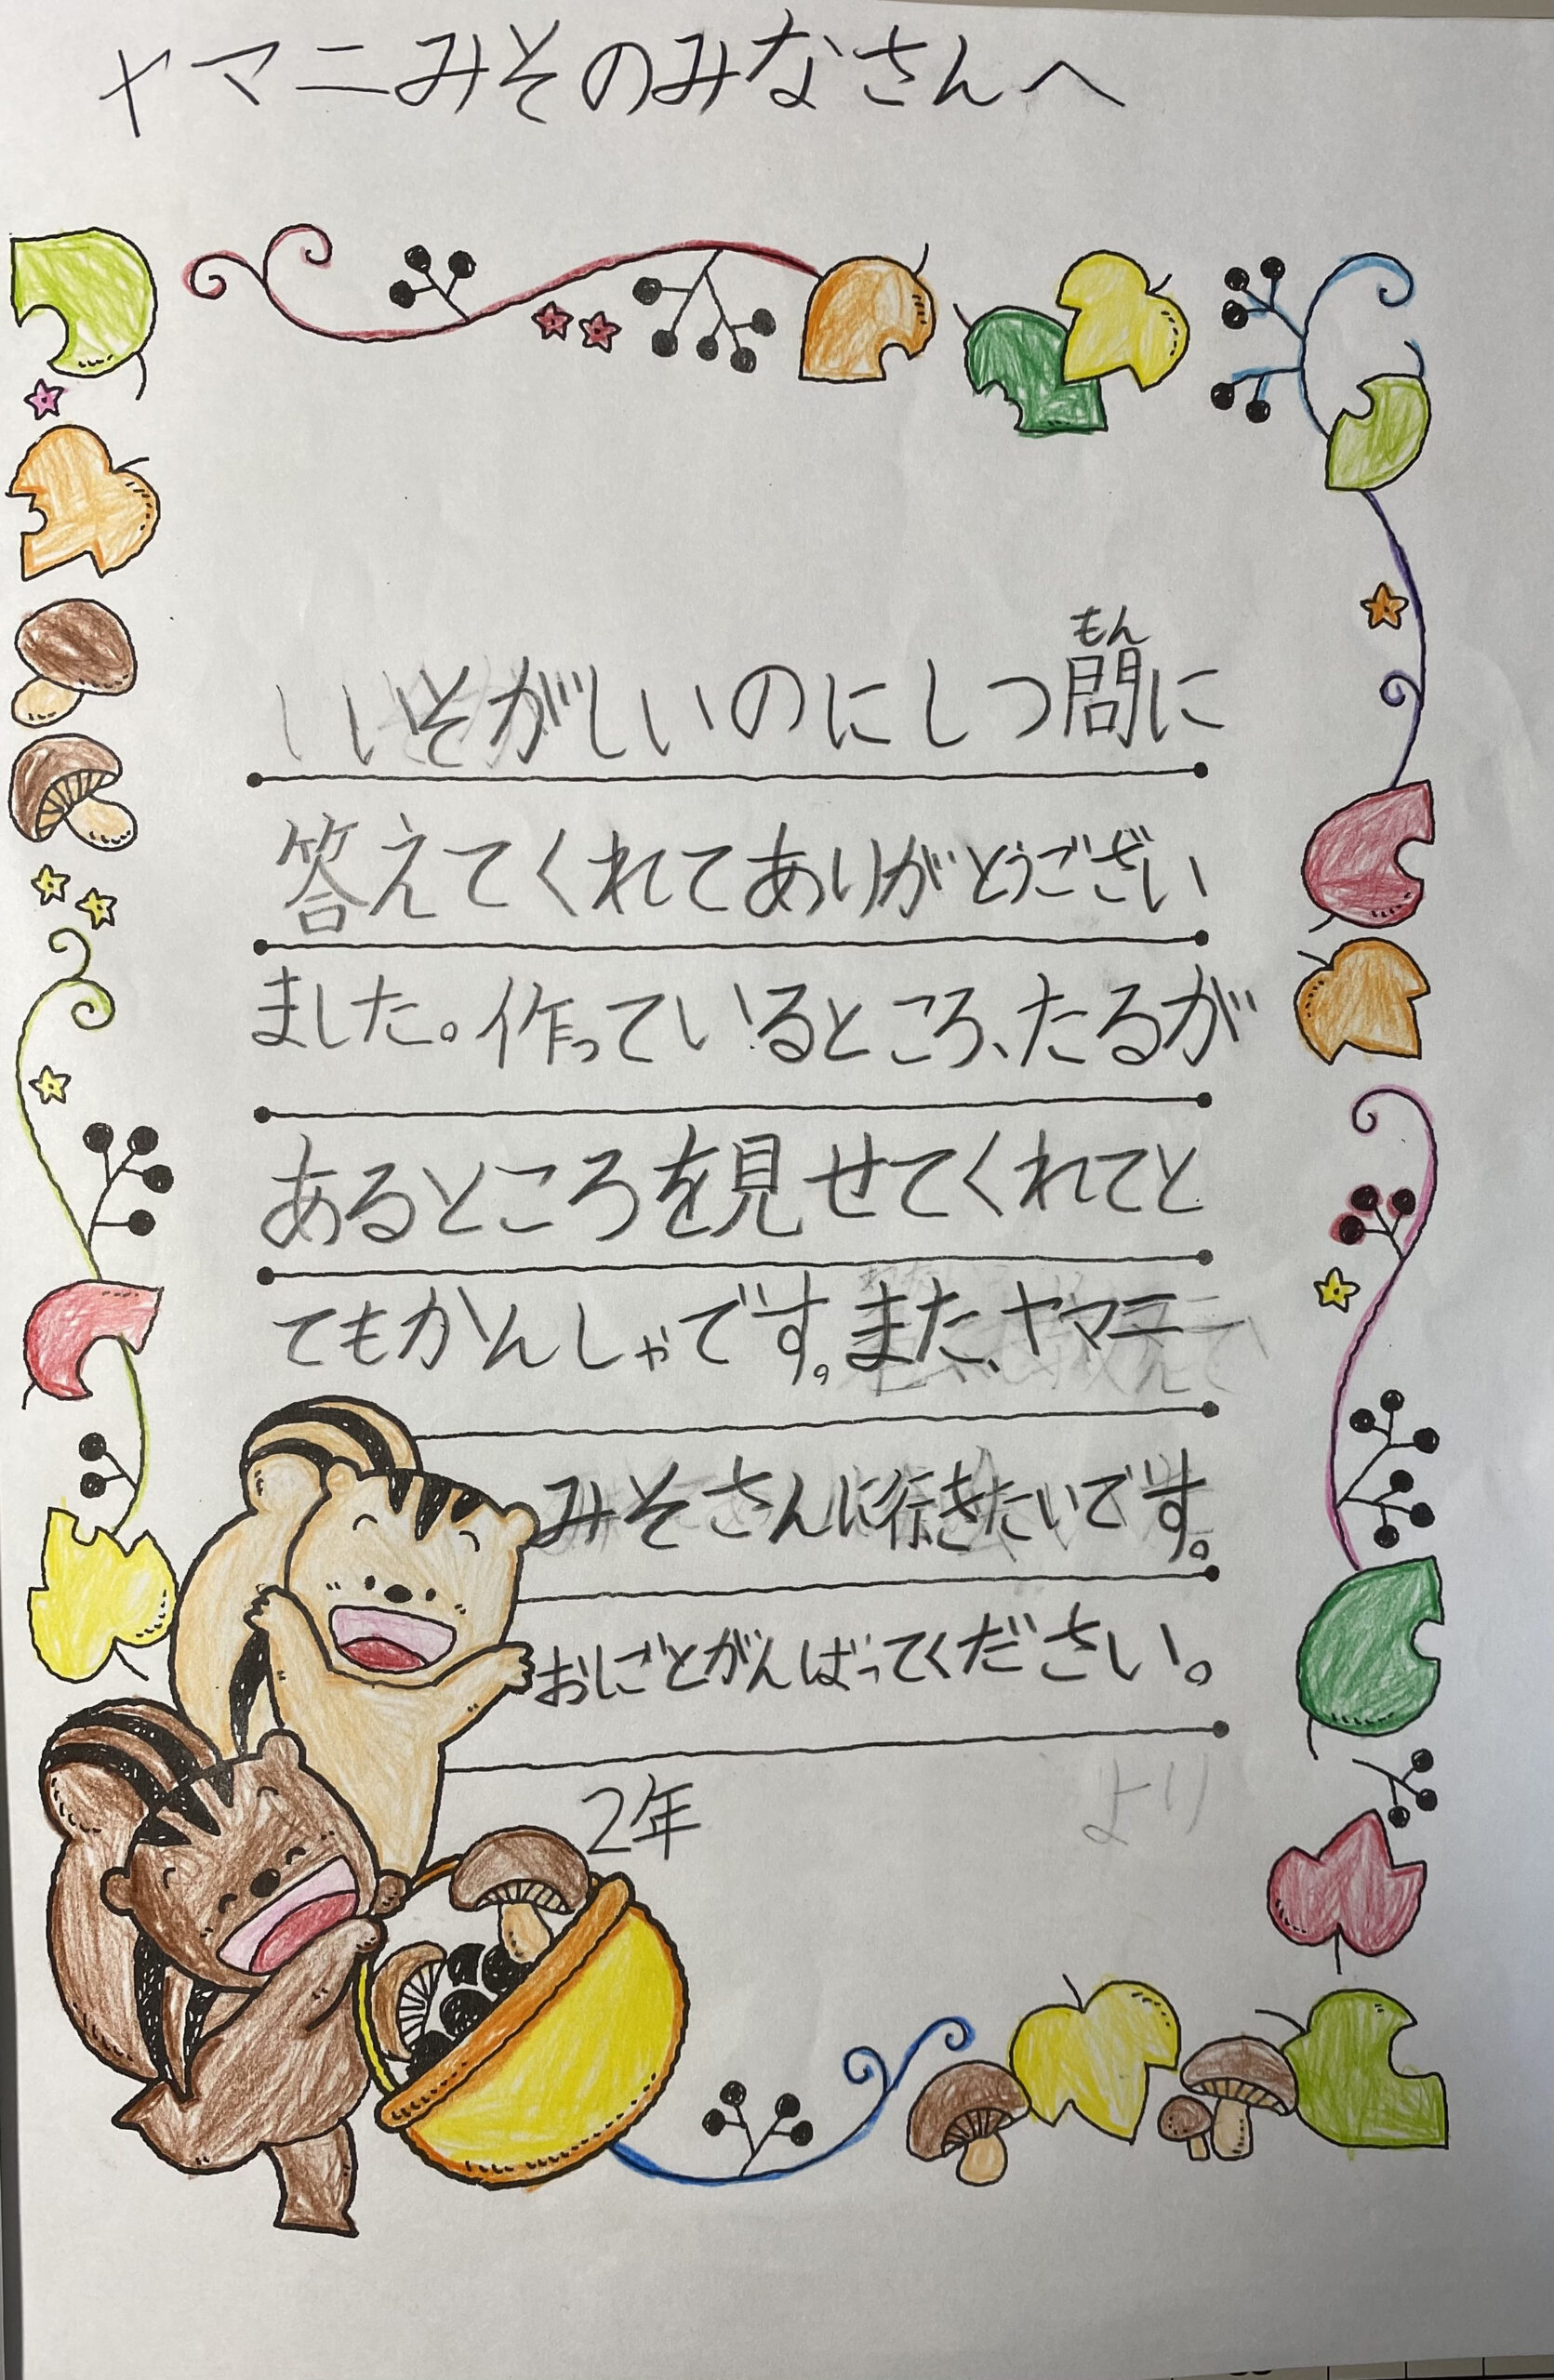 ヤマニみそのみなさんへ
もん
いそがしいのにしつ問に
答えてくれてありがとうござい
ました。作っているところ、たるが
あるところを見せてくれてと
てもかんしゃです。また、ヤマニ
みそさんに行きたいです。
おしごとがんばってください。
2年 より